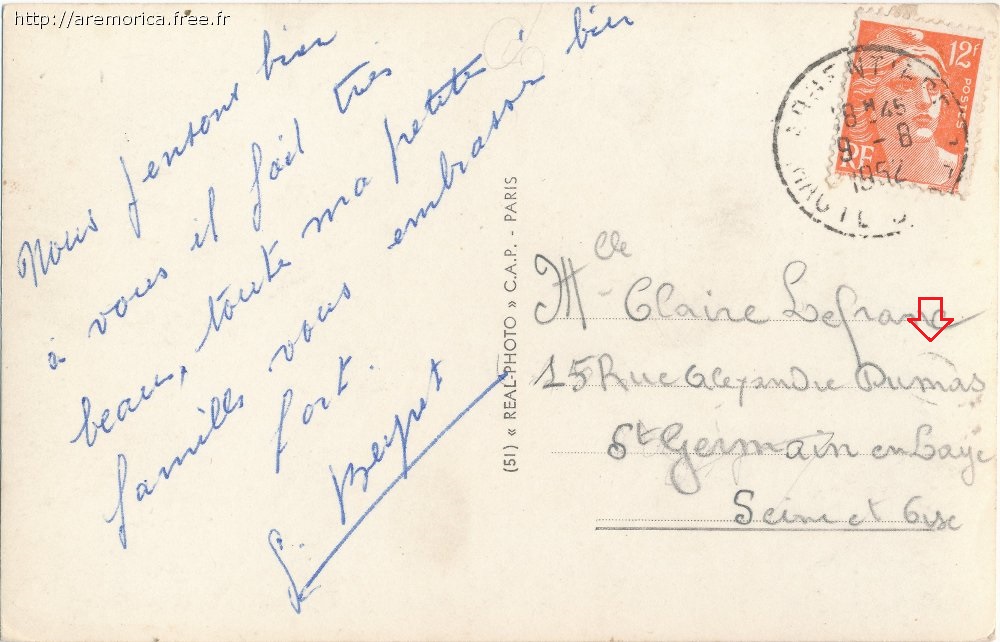 http://aremorica.free.fr
Nous pensons bien
à vous il fait très
beau, toute ma petite
famille vous embrasse bien
fort.
12F
POSTES
RF
18 45
9 - 8
1952
HAUTE
(51) « REAL-PHOTO » C.A.P. - PARIS
Mlle Claire Lefranc
15 Rue Alexandre Dumas
St Germain en Laye
Seine et Oise